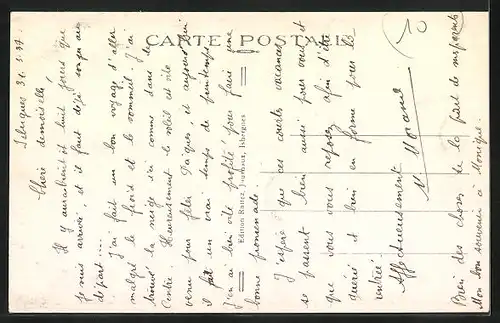 CARTE POSTALE
Isbergues 31.3.37
Chère demoiselle,
Il y aura bientôt huit jours que
je suis arrivée, et il faut déjà songer au
départ....
J'ai fait un bon voyage d'aller
malgré le froid et le sommeil. J'ai
trouvé la neige ici comme dans le
Centre. Heureusement le soleil est vite
venu pour fêter Pâques et aujourd'hui
il fait un vrai temps de printemps.
J'en ai bien vite profité pour faire une
bonne promenade.
J'espère que ces courtes vacances
se passent bien aussi pour vous et
que vous vous reposez afin d'être
guérie et bien en forme pour la
rentrée.
Affectueusement
M. Morand
Bien des choses de la part de mes parents
Mon bon souvenir à Monique.
Edition Rattez, Journaux, Isbergues